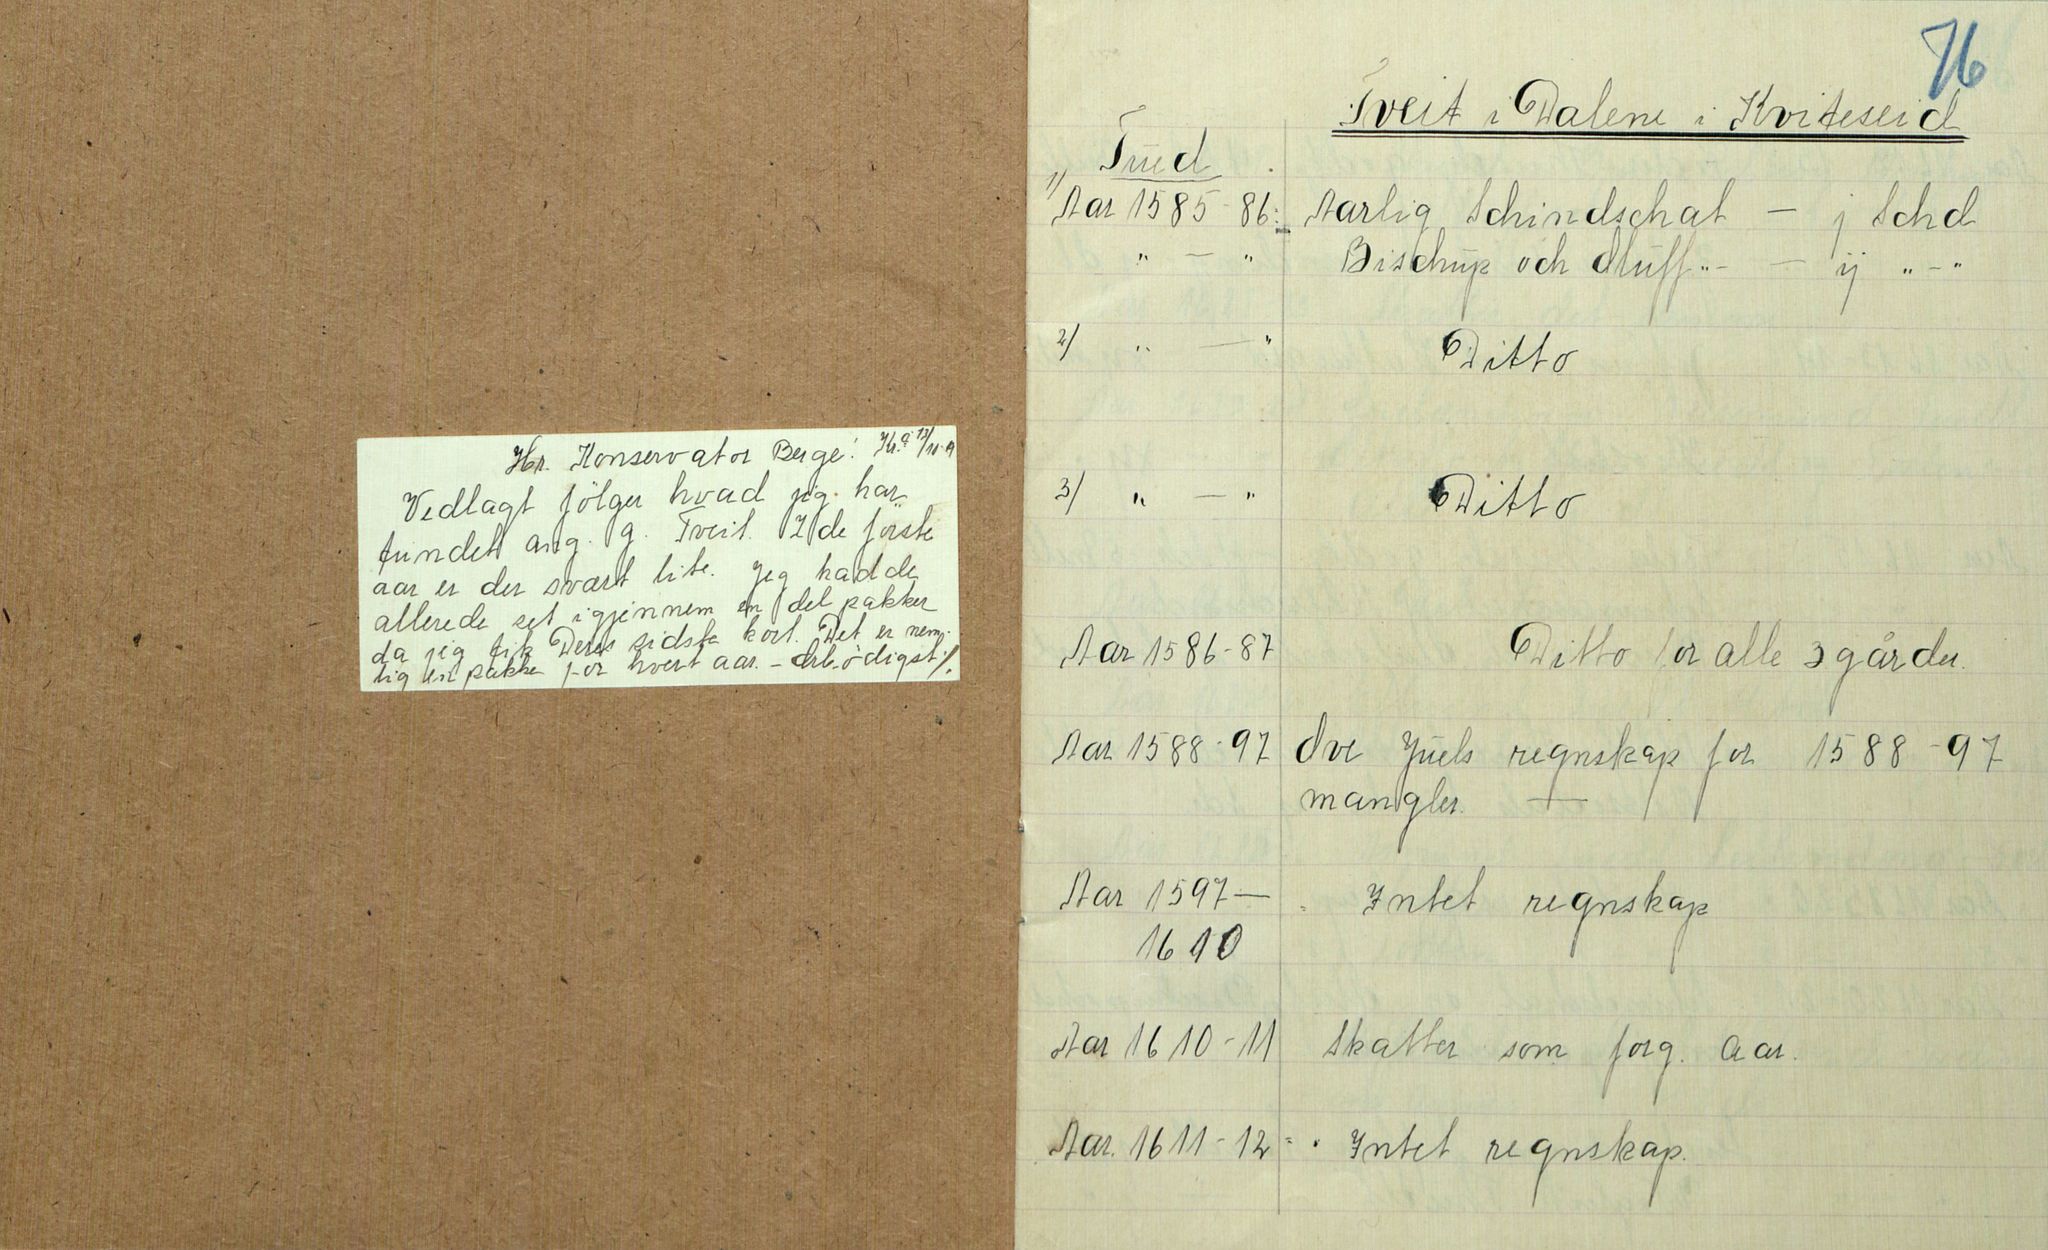 Hr. Konservator Berge! Kr.a 13/10-19
Vedlagt følger hvad jeg har
fundet ang. g. Tveit. I de første
aar er der svært lite. Jeg hadde
allerede set igjennem en del pakker
da jeg fik Deres sidste kort. Det er nem-
lig en pakke for hvert aar. – Ærbødigst
76
Tveit i Dalene i Kviteseid
Tued
1/ Aar 1585-86: Aarlig Schindschat — j Schd
" — " Bischup och — ij " – "
2/ " — " Ditto
3/ " — " Ditto
Aar 1586-87 Ditto for alle 3 gårder.
Aar 1588-97 Ove Juels regnskap for 1588-97
mangler. —
Aar 1597— Intet regnskap
1610
Aar 1610-11 Skatter som forg. aar.
Aar. 1611-12 Intet regnskap.